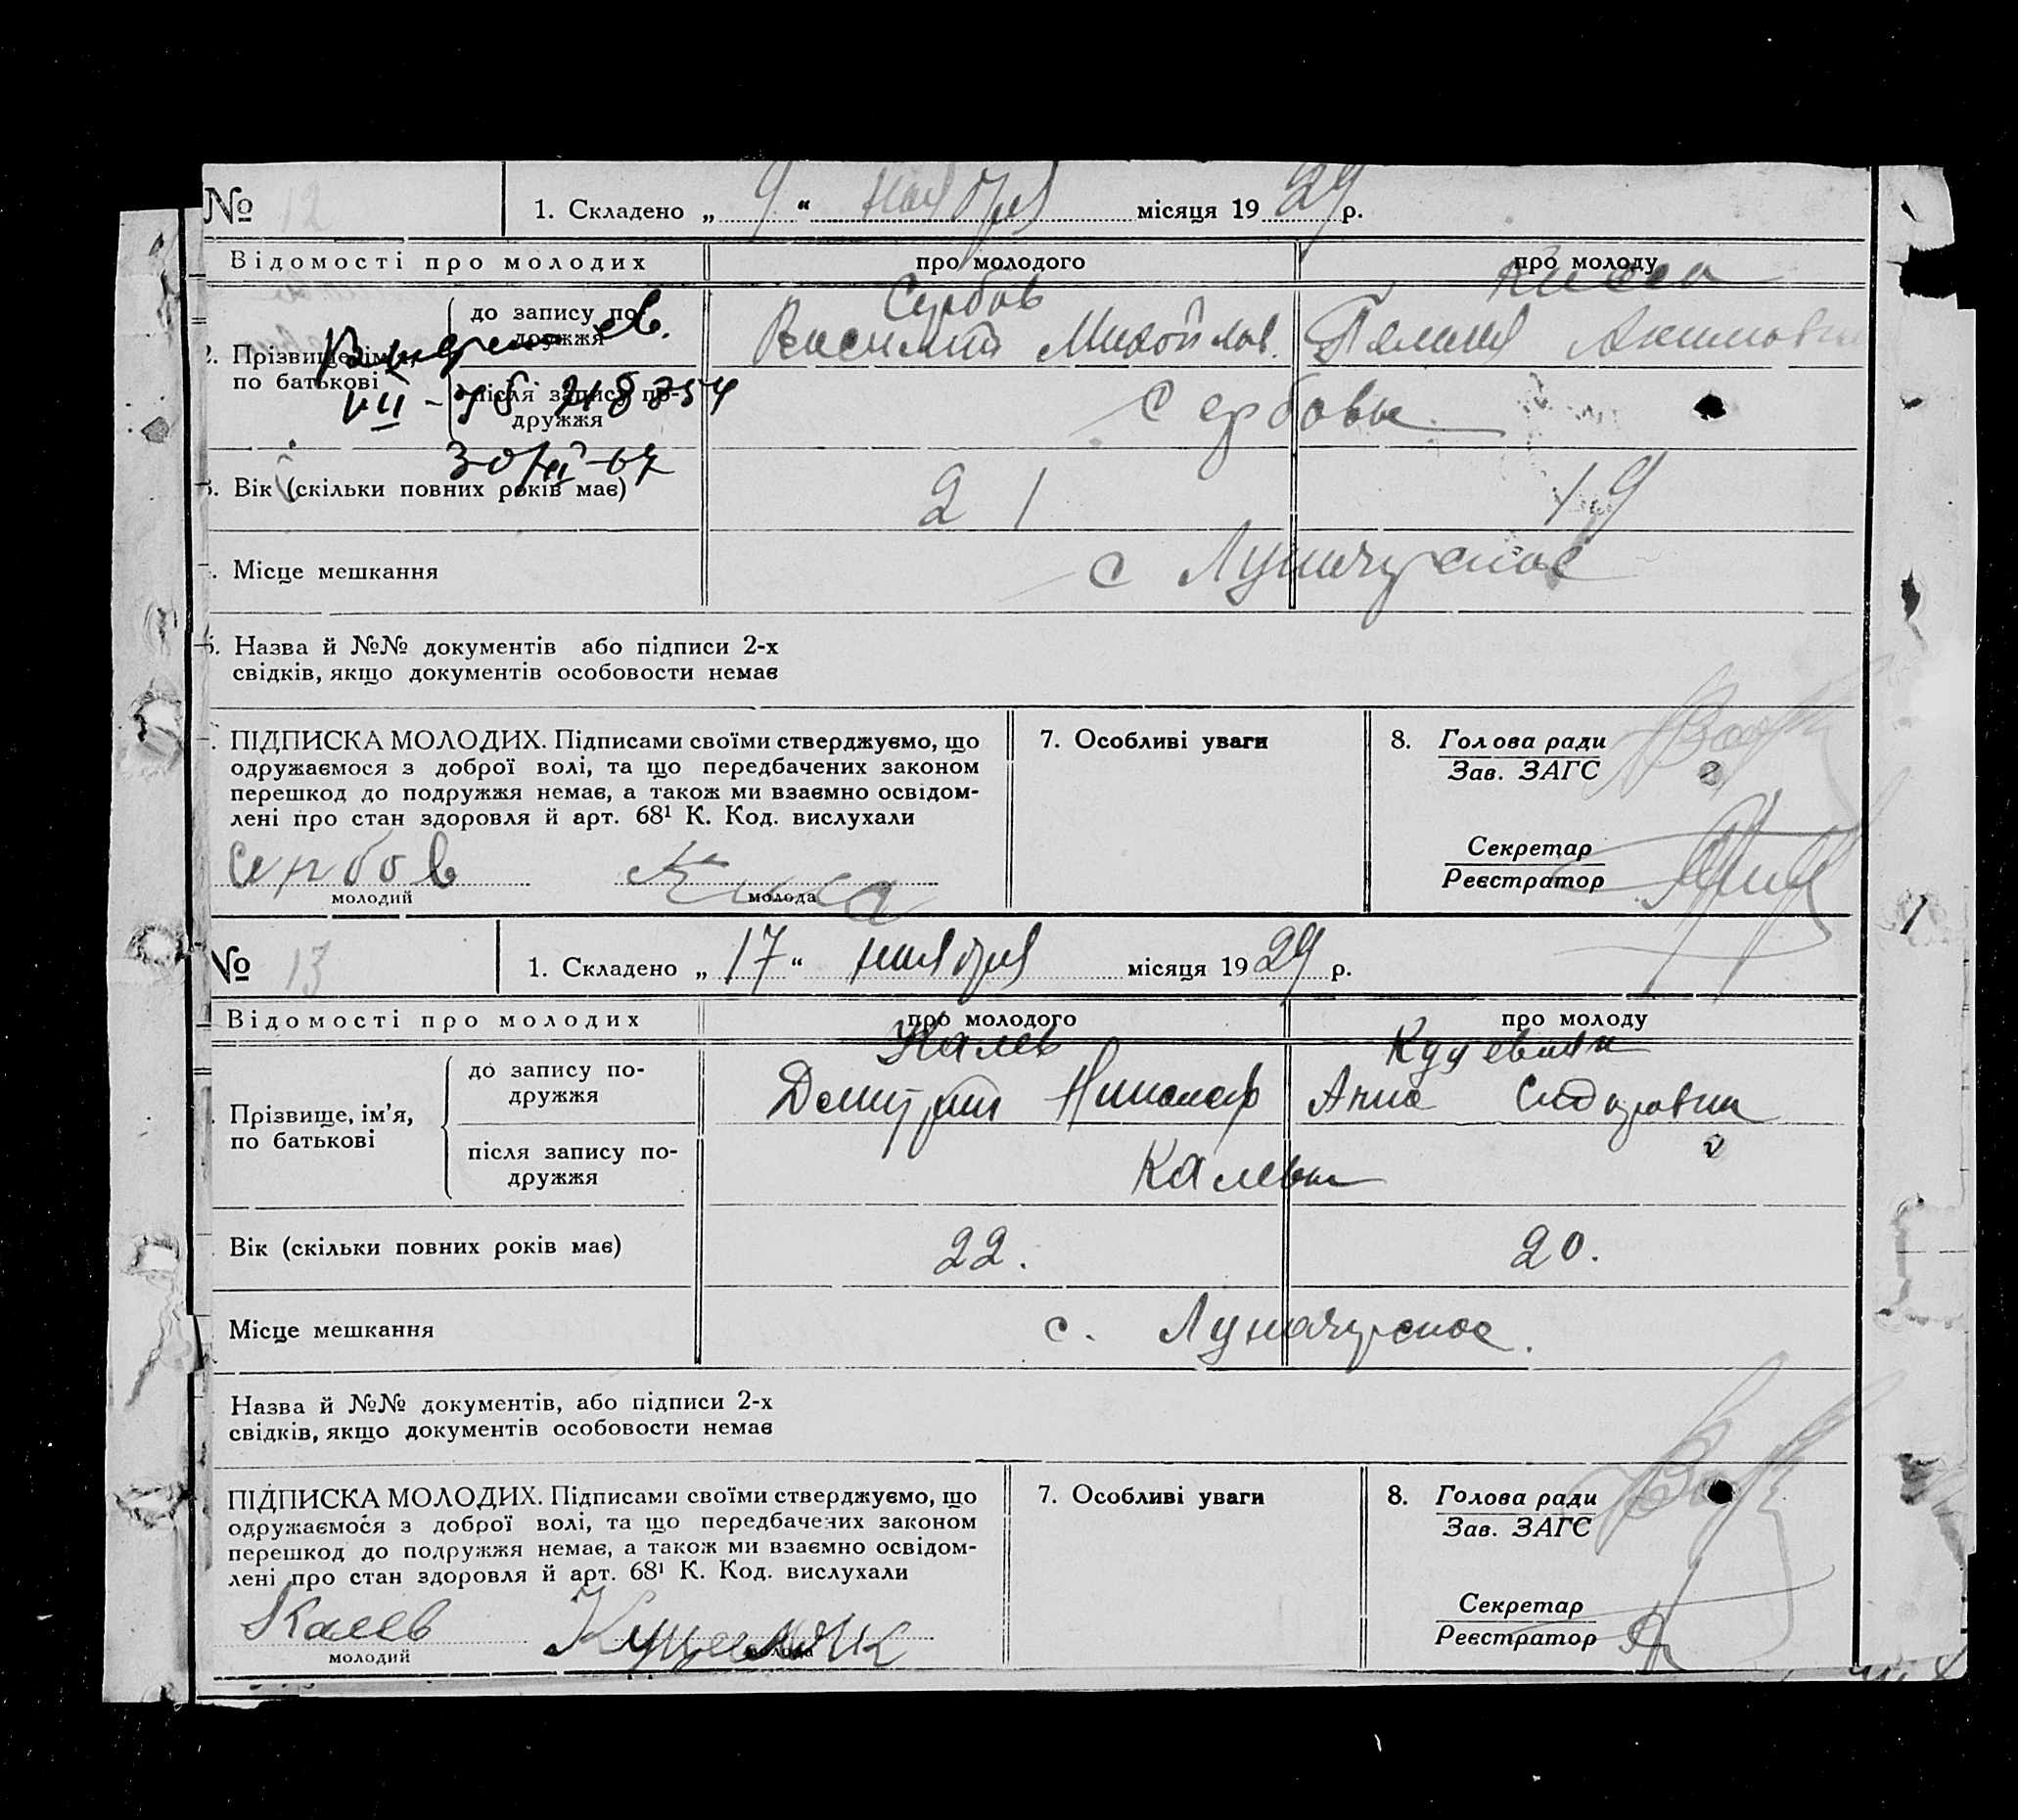 № 12 1. Складено „ 9 “ ноября місяця 19 29 р.
Відомості про молодих про молодого про молоду
2. Прізвище, ім'я, по батькові
до запису подружжя
Сербов Киса
Василий Михайлов. Акимовна
після запису подружжя
Сербовы
VII-ЯБ
30/XI-67
3. Вік (скільки повних років має) 21 19
. Місце мешкання с Луначарское
5. Назва й №№ документів або підписи 2-х
свідків, якщо документів особовости немає
. ПІДПИСКА МОЛОДИХ. Підписами своїми стверджуємо, що
одружаємося з доброї волі, та що передбачених законом
перешкод до подружжя немає, а також ми взаємно освідом-
лені про стан здоровля й арт. 68¹ К. Код. вислухали
7. Особливі уваги
8. Голова ради
Зав. ЗАГС
Секретар
Реєстратор
Сербов Киса
молодий молода
№ 13 1. Складено „ 17 “ ноября місяця 19 29 р.
Відомості про молодих про молодого про молоду
. Прізвище, ім'я,
по батькові
до запису по-
дружжя
Калев
Дмитрий Николаеф Анна Сидоровна
після запису по-
дружжя
Калевы
Вік (скільки повних років має) 22. 20.
Місце мешкання с. Луначарское.
Назва й №№ документів, або підписи 2-х
свідків, якщо документів особовости немає
ПІДПИСКА МОЛОДИХ. Підписами своїми стверджуємо, що
одружаємося з доброї волі, та що передбачених законом
перешкод до подружжя немає, а також ми взаємно освідом-
лені про стан здоровля й арт. 68¹ К. Код. вислухали
7. Особливі уваги
8. Голова ради
Зав. ЗАГС
Секретар
Реєстратор
Калев
молодий молода